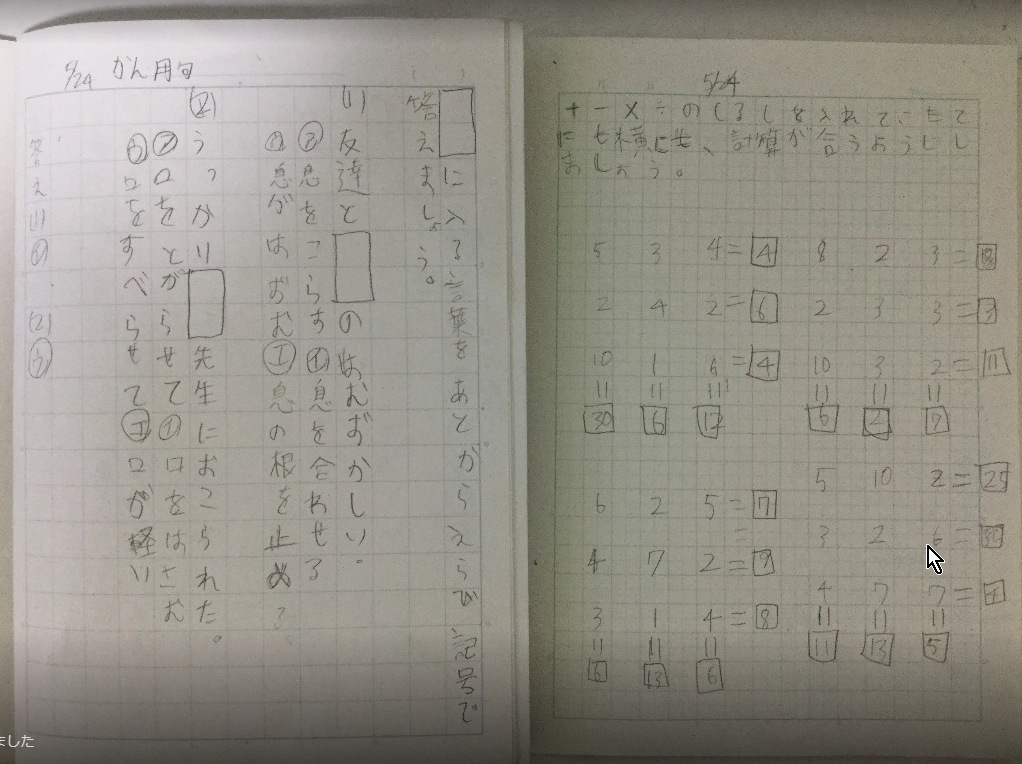 5/24 かん用句
□に入る言葉をあとからえらび記号で
答えましょう。
(1) 友達と□のはむずかしい。
㋐息をこらす ㋑息を合わせる
㋒息がはずむ ㋓息の根を止め
(2) うっかり□先生におこられた。
㋐口をとがらせて ㋑口をはさむ
㋒口をすべらせて ㋓口が軽い
答え(1)㋑ (2)㋒
5/24
+ - × ÷ のしるしを入れて、たて
にも横にも、計算が合うようにし
ましょう。
5 3 4 = 4
2 4 2 = 6
10 1 6 = 4
= = =
30 6 12
8 2 3 =
2 3 3 = 3
10 3 2 = 11
= = =
6 2 7
6 2 5 = 7
4 7 2 = 9
3 1 4 = 8
= = =
6 13 6
5 10 2 = 25
3 2 6 =
4 7 7 = 4
= = =
11 13 5
ました